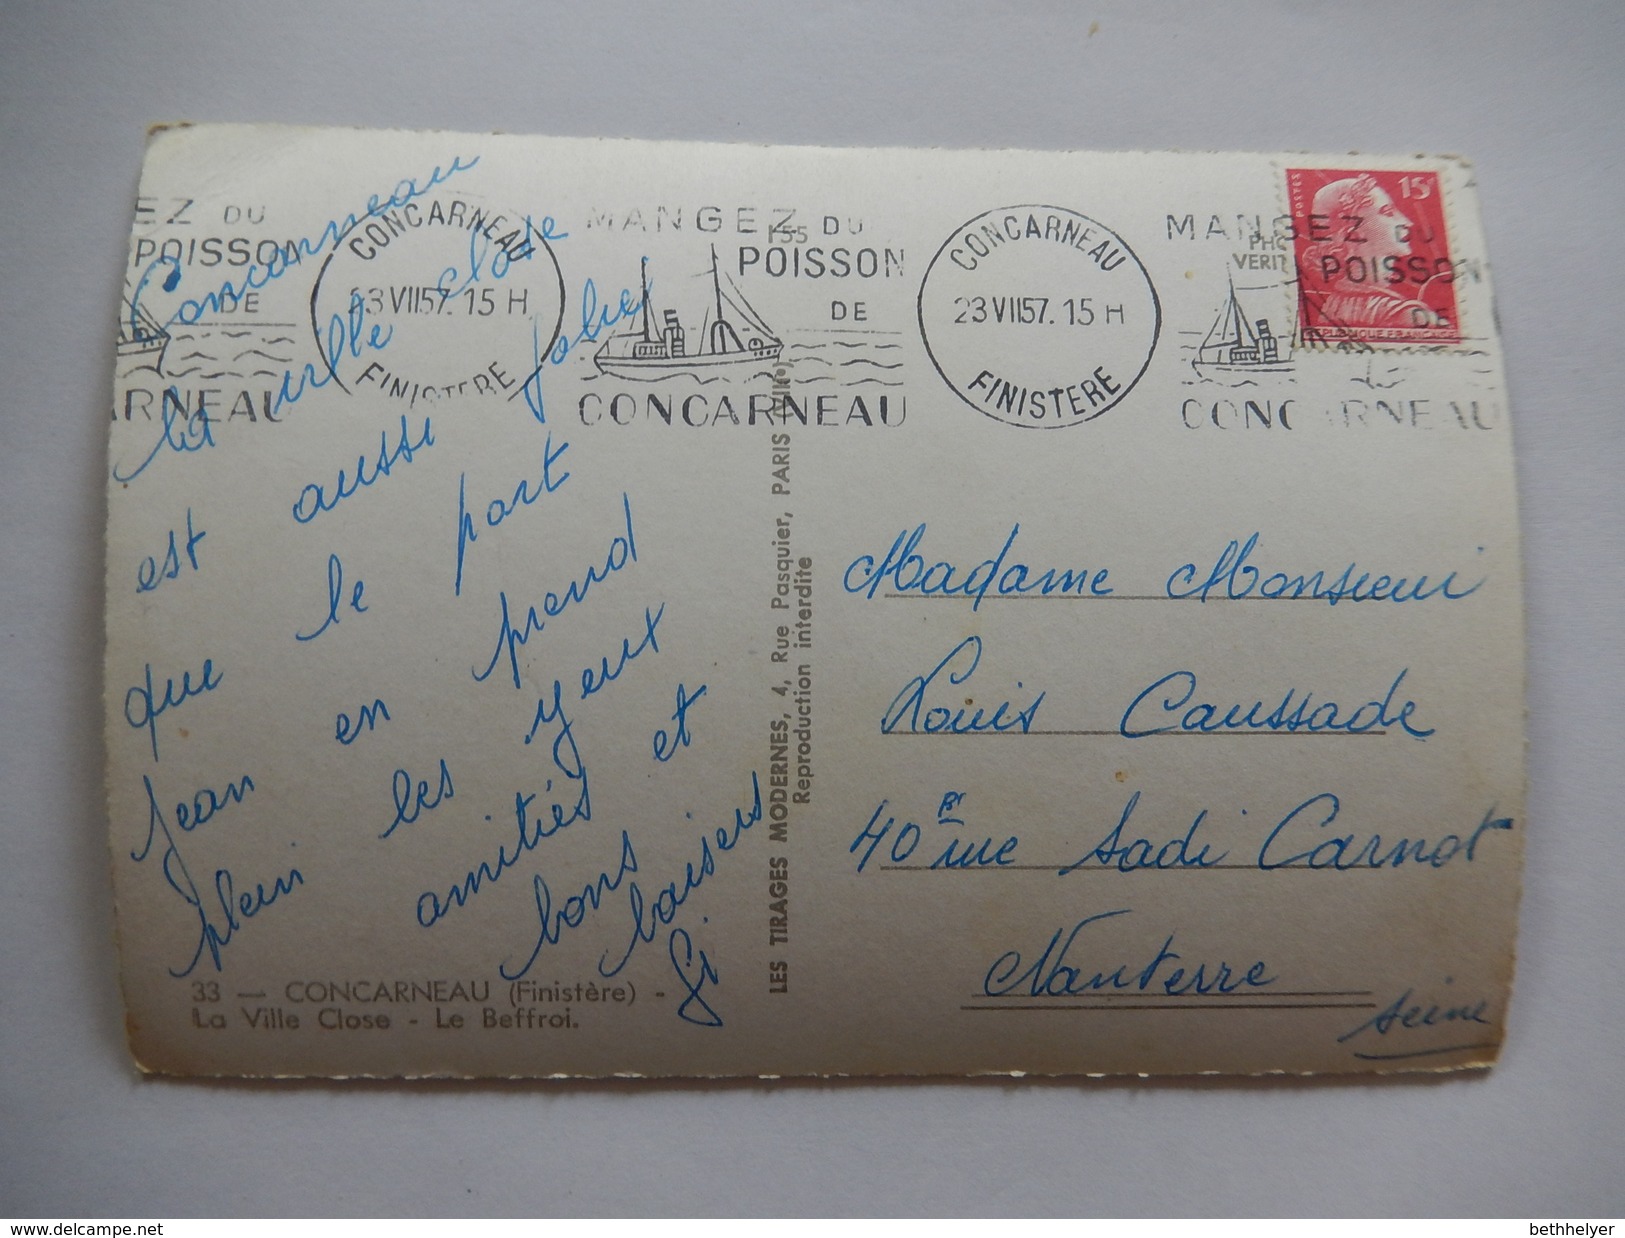 EZ DU
POISSON
DE
ARNEAU
CONCARNEAU
23 VII 57. 15 H
FINISTERE
MANGEZ DU
POISSON
DE
CONCARNEAU
CONCARNEAU
23 VII 57. 15 H
FINISTERE
MANGEZ DU
POISSON
DE
CONCARNEAU
155
PHO
VERIT
POSTES
15F
REPUBLIQUE FRANÇAISE
Concarneau
la ville close
est aussi jolie
que le port
Jean en prend
plein les yeux
amitiés et
bons baisers
Gi
33 — CONCARNEAU (Finistère) -
La Ville Close - Le Beffroi.
LES TIRAGES MODERNES, 4, Rue Pasquier, PARIS (VIIIe)
Reproduction interdite
Madame Monsieur
Louis Caussade
40 rue Sadi Carnot
Nanterre
Seine
delcampe.net
bethhelyer